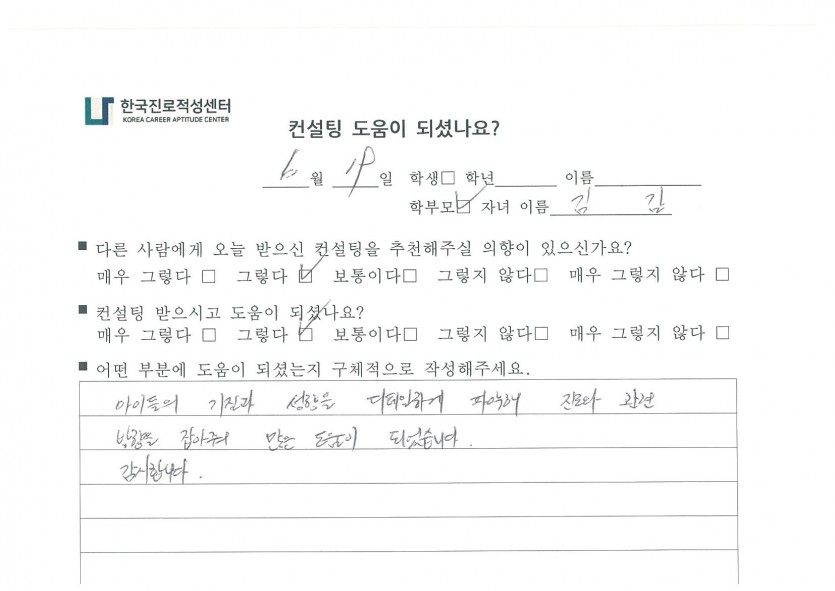 한국진로적성센터
KOREA CAREER APTITUDE CENTER
컨설팅 도움이 되셨나요?
6월 19일 학생□ 학년 이름
학부모☑ 자녀 이름 김 김
■ 다른 사람에게 오늘 받으신 컨설팅을 추천해주실 의향이 있으신가요?
매우 그렇다 □ 그렇다 ☑ 보통이다□ 그렇지 않다□ 매우 그렇지 않다 □
■ 컨설팅 받으시고 도움이 되셨나요?
매우 그렇다 □ 그렇다 ☑ 보통이다□ 그렇지 않다□ 매우 그렇지 않다 □
■ 어떤 부분에 도움이 되셨는지 구체적으로 작성해주세요.
아이들의 기질과 성향을 디테일하게 파악해 진로와 관련
방향을 잡아줘서 많은 도움이 되었습니다.
감사합니다.